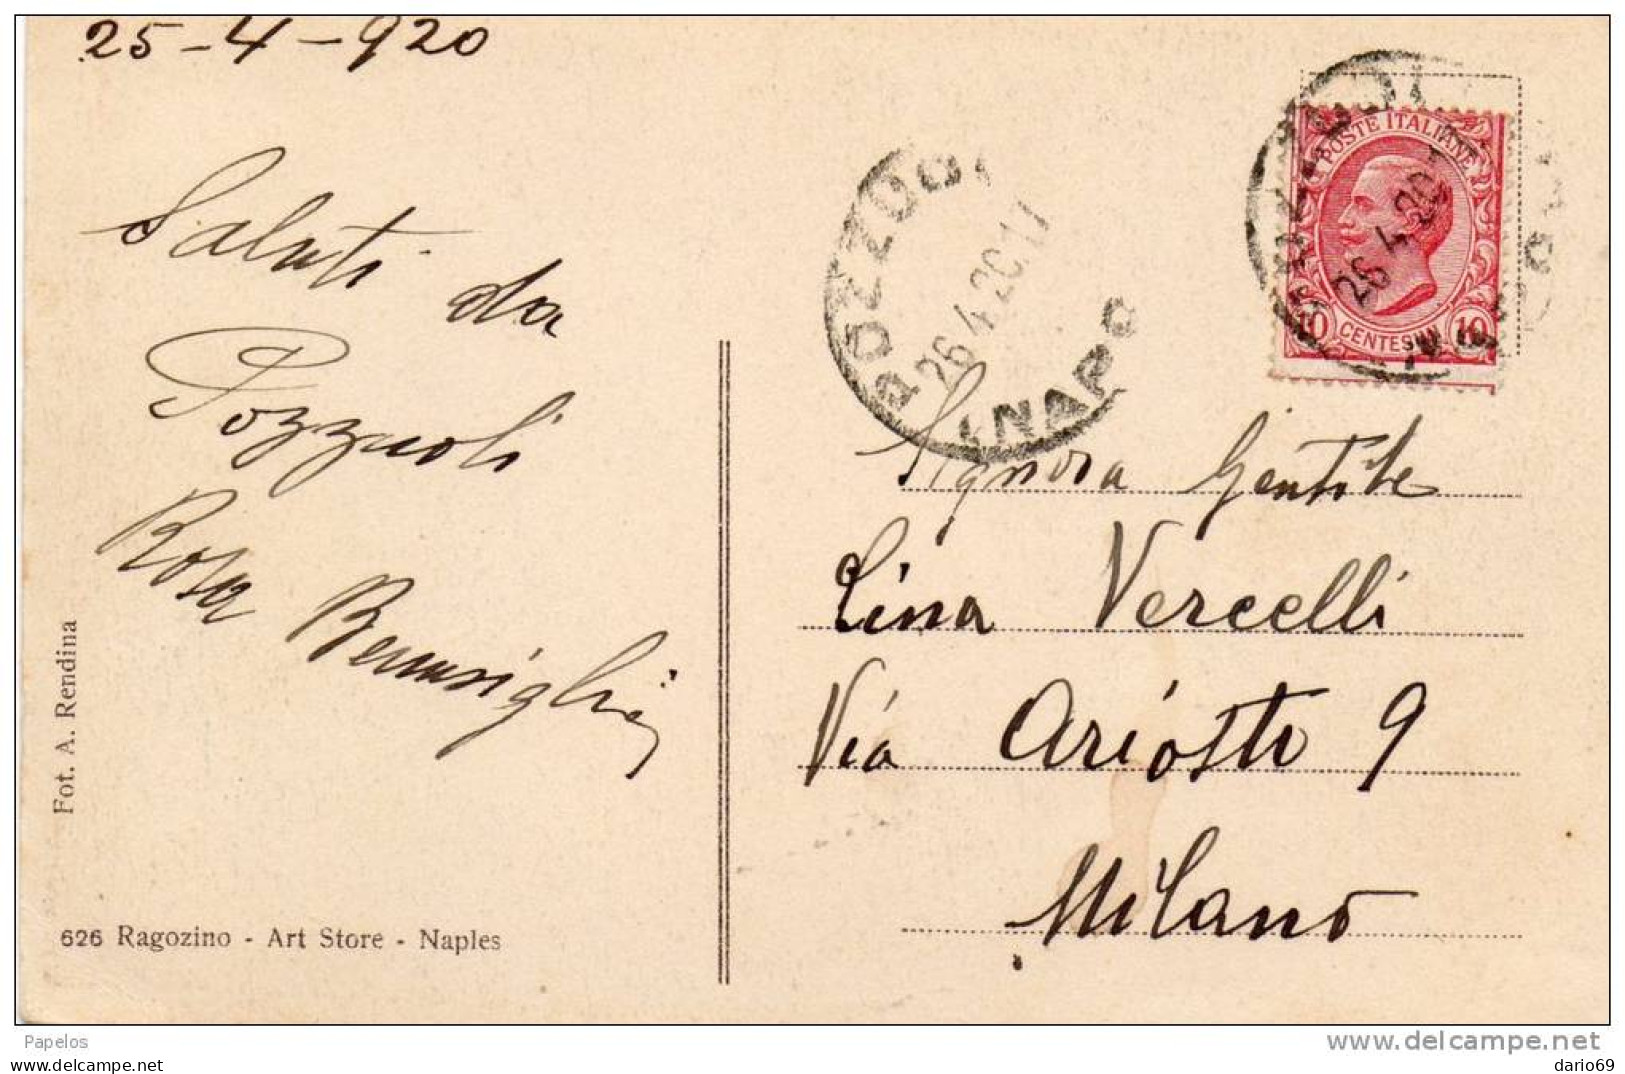 25-4-920
Saluti da
Pozzuoli
Rosa
Fot. A. Rendina
626 Ragozino - Art Store - Naples
POZZUOLI
26.4.20.17
(NAPO
POSTE ITALIANE
26.4.20
10 CENTESIMI 10
Signora Gentile
Lina Vercelli
Via Ariosto 9
Milano
Papelos
www.delcampe.net
dario69